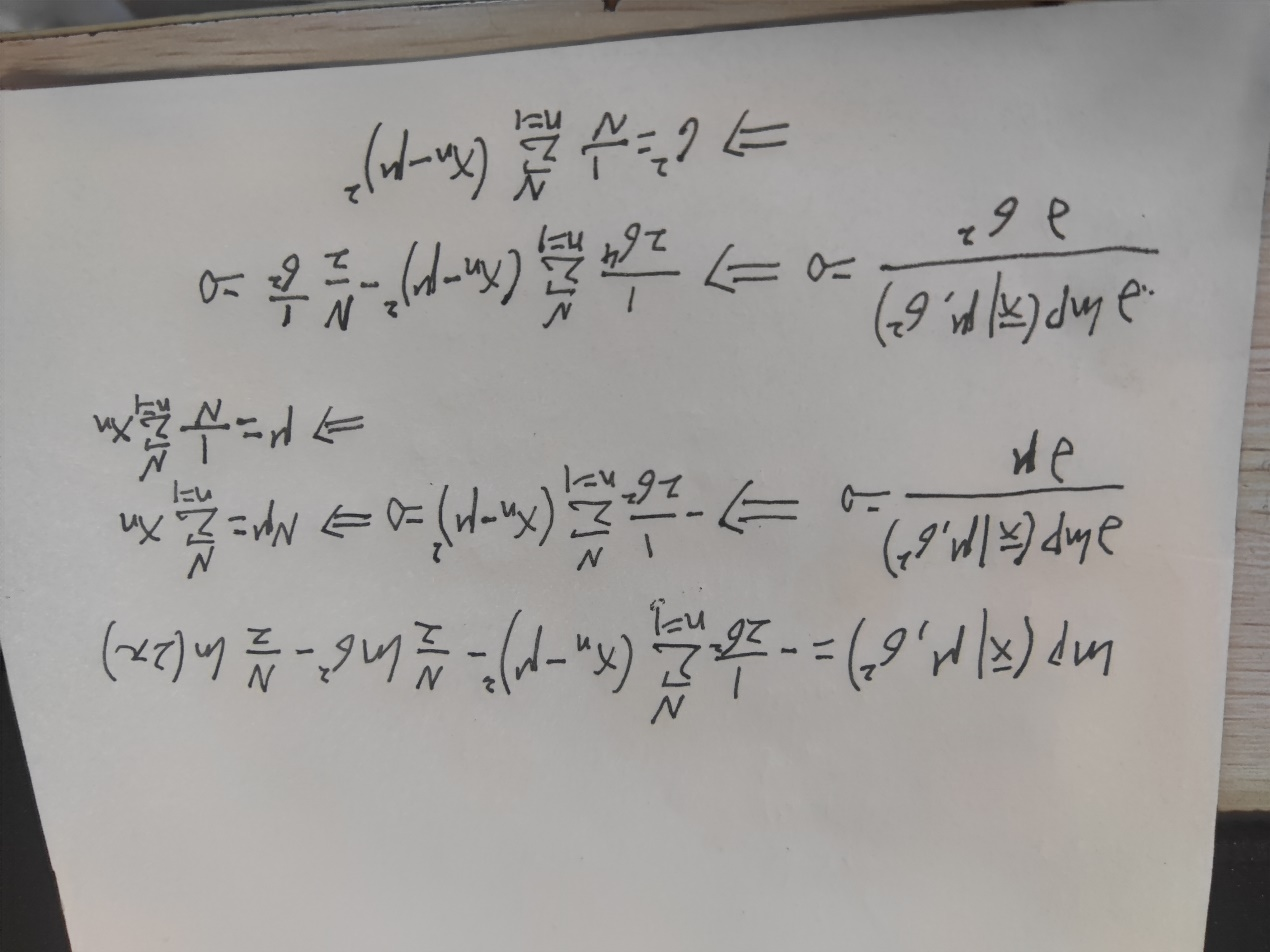 ln p(x̲|μ,σ²) = -\frac{1}{2σ²} \sum_{n=1}^{N} (x_n-μ)² - \frac{N}{2} ln σ² - \frac{N}{2} ln(2π)
\frac{∂ ln p(x̲|μ,σ²)}{∂μ} = 0 ⟹ -\frac{1}{2σ²} \sum_{n=1}^{N} (x_n-μ)² = 0 ⟹ Nμ = \sum_{n=1}^{N} x_n
⟹ μ = \frac{1}{N} \sum_{n=1}^{N} x_n
\frac{∂ ln p(x̲|μ,σ²)}{∂σ²} = 0 ⟹ \frac{1}{2σ⁴} \sum_{n=1}^{N} (x_n-μ)² - \frac{N}{2} \frac{1}{σ²} = 0
⟹ σ² = \frac{1}{N} \sum_{n=1}^{N} (x_n-μ)²